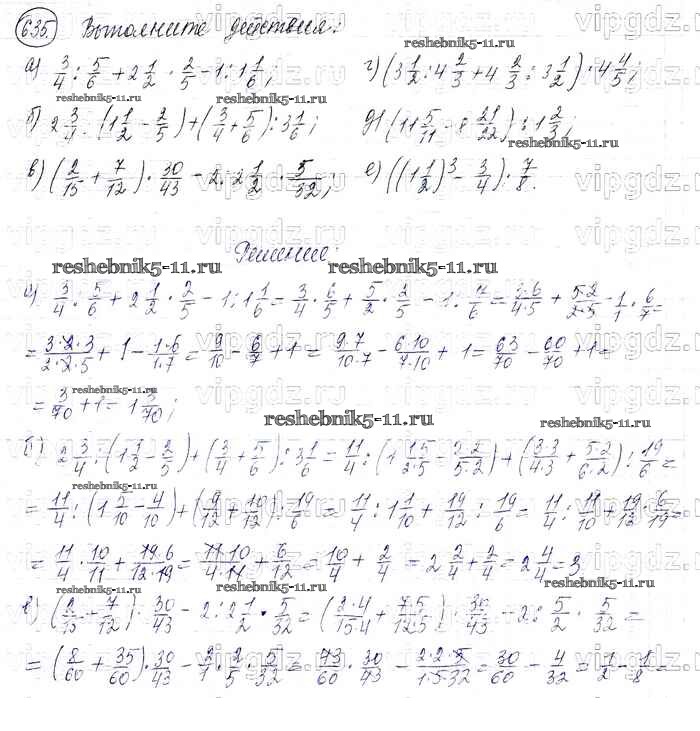 635. Выполните действия:
а) 3/4 : 5/6 + 2 1/2 · 2/5 − 1 : 1 1/6; г) (3 1/2 : 4 2/3 + 4 2/3 : 3 1/2) · 4 4/5;
б) 2 3/4 : (1 1/2 − 2/5) + (3/4 + 5/6) : 3 1/6; д) (11 5/11 − 8 21/22) : 1 2/3;
в) (2/15 + 7/12) · 30/43 − 2 : 2 1/2 · 5/32; е) ((1 1/2)³ − 3/4) · 7/8.
Решение:
а) 3/4 : 5/6 + 2 1/2 · 2/5 − 1 : 1 1/6 = 3/4 · 6/5 + 5/2 · 2/5 − 1 : 7/6 = 3·6/4·5 + 5·2/2·5 − 1/1 · 6/7 =
= 3·2·3/2·2·5 + 1 − 1·6/1·7 = 9/10 − 6/7 + 1 = 9·7/10·7 − 6·10/7·10 + 1 = 63/70 − 60/70 + 1 =
= 3/70 + 1 = 1 3/70;
б) 2 3/4 : (1 1/2 − 2/5) + (3/4 + 5/6) : 3 1/6 = 11/4 : (1 1·5/2·5 − 2·2/5·2) + (3·3/4·3 + 5·2/6·2) : 19/6 =
= 11/4 : (1 5/10 − 4/10) + (9/12 + 10/12) : 19/6 = 11/4 : 1 1/10 + 19/12 : 19/6 = 11/4 : 11/10 + 19/12 · 6/19 =
= 11/4 · 10/11 + 19·6/12·19 = 11·10/4·11 + 6/12 = 10/4 + 2/4 = 2 2/4 + 2/4 = 2 4/4 = 3
в) (2/15 + 7/12) · 30/43 − 2 : 2 1/2 · 5/32 = (2·4/15·4 + 7·5/12·5) · 30/43 − 2 : 5/2 · 5/32 =
= (8/60 + 35/60) · 30/43 − 2/1 · 2/5 · 5/32 = 43/60 · 30/43 − 2·2·5/1·5·32 = 30/60 − 4/32 = 1/2 − 1/8 =
reshebnik5-11.ru
vipgdz.ru